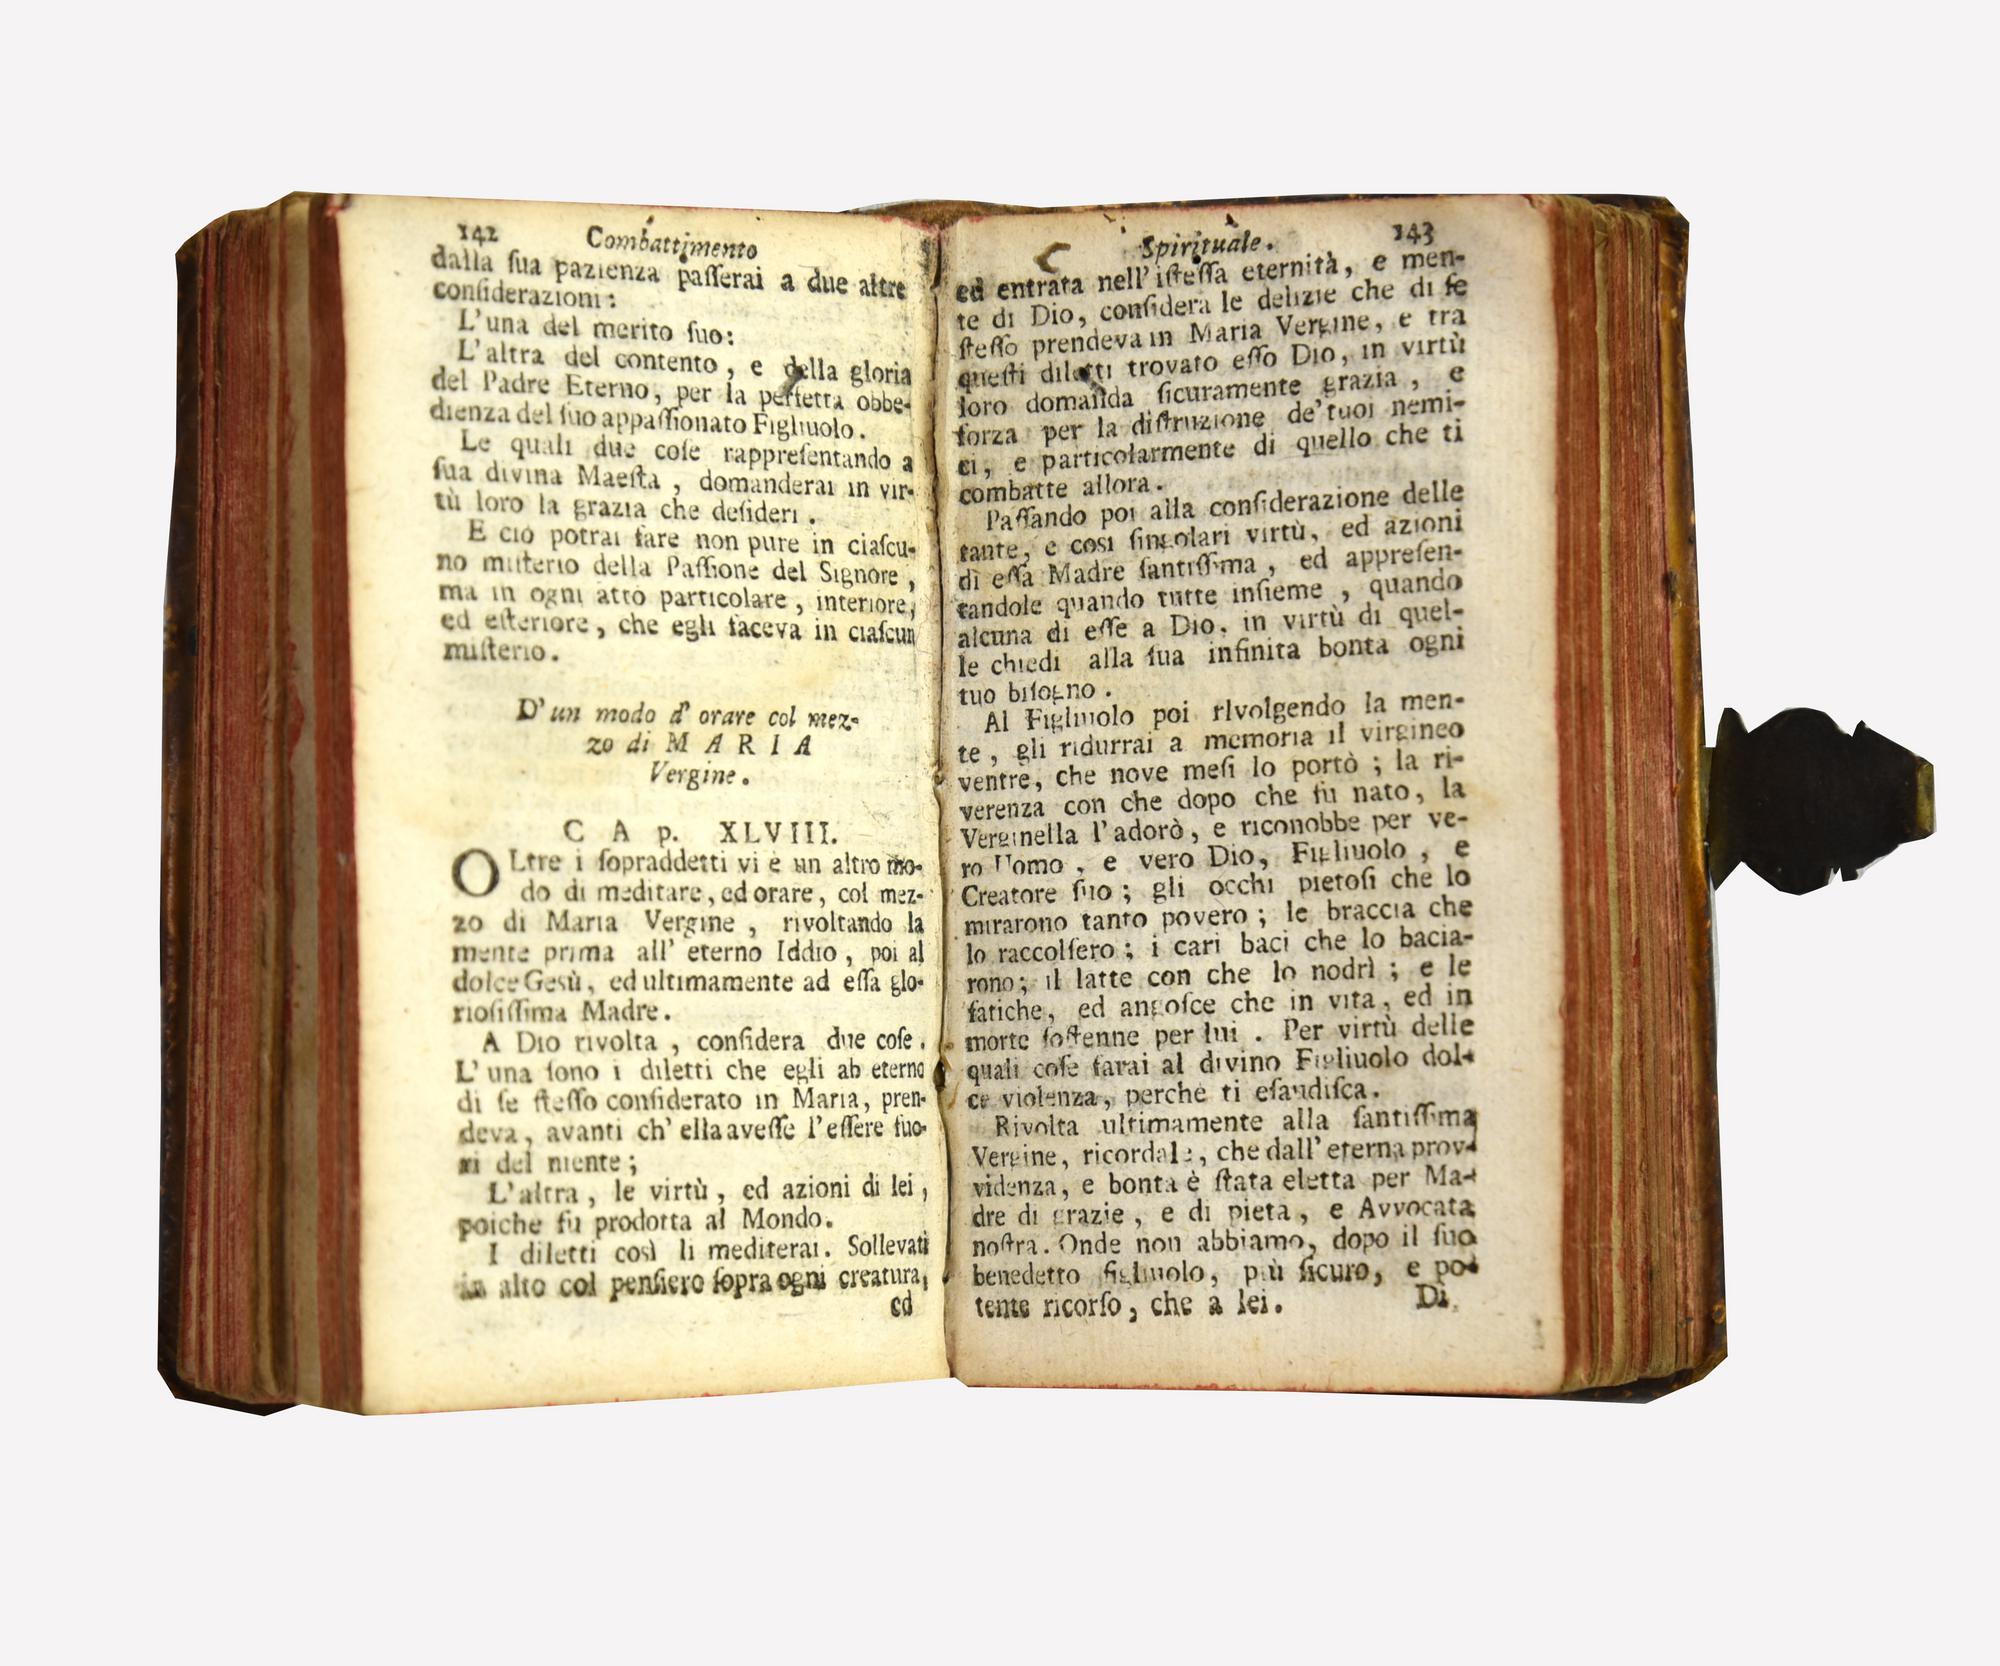 142 Combattimento
dalla ſua pazienza paſſerai a due altre
conſiderazioni:
L'una del merito ſuo:
L'altra del contento, e della gloria
del Padre Eterno, per la perfetta obbe-
dienza del ſuo appaſſionato Figliuolo.
Le quali due coſe rappreſentando a
ſua divina Maeſta, domanderai in vir-
tù loro la grazia che deſideri.
E ciò potrai fare non pure in ciaſcu-
no miſterio della Paſſione del Signore,
ma in ogni atto particolare, interiore,
ed eſteriore, che egli faceva in ciaſcun
miſterio.
D'un modo d'orare col mez-
zo di MARIA
Vergine.
CAp. XLVIII.
OLtre i ſopraddetti vi è un altro mo-
do di meditare, ed orare, col mez-
zo di Maria Vergine, rivoltando la
mente prima all' eterno Iddio, poi al
dolce Gesù, ed ultimamente ad eſſa glo-
rioſiſſima Madre.
A Dio rivolta, conſidera due coſe.
L'una ſono i diletti che egli ab eterno
di ſe ſteſſo conſiderato in Maria, pren-
deva, avanti ch' ella aveſſe l'eſſere fuo-
ri del niente;
L'altra, le virtù, ed azioni di lei,
poiche fu prodotta al Mondo.
I diletti così li mediterai. Sollevati
in alto col penſiero ſopra ogni creatura,
ed
Spirituale. 143
ed entrata nell'iſteſſa eternità, e men-
te di Dio, conſidera le delizie che di ſe
ſteſſo prendeva in Maria Vergine, e tra
queſti diletti trovato eſſo Dio, in virtù
loro domanda ſicuramente grazia, e
forza per la diſtruzione de'tuoi nemi-
ci, e particolarmente di quello che ti
combatte allora.
Paſſando poi alla conſiderazione delle
tante, e così ſingolari virtù, ed azioni
di eſſa Madre ſantiſſima, ed appreſen-
tandole quando tutte inſieme, quando
alcuna di eſſe a Dio, in virtù di quel-
le chiedi alla ſua infinita bonta ogni
tuo biſogno.
Al Figliuolo poi rivolgendo la men-
te, gli ridurrai a memoria il virgineo
ventre, che nove meſi lo portò; la ri-
verenza con che dopo che fu nato, la
Verginella l'adorò, e riconobbe per ve-
ro Uomo, e vero Dio, Figliuolo, e
Creatore ſuo; gli occhi pietoſi che lo
mirarono tanto povero; le braccia che
lo raccolſero; i cari baci che lo bacia-
rono; il latte con che lo nodrì; e le
fatiche, ed angoſce che in vita, ed in
morte ſoſtenne per lui. Per virtù delle
quali coſe farai al divino Figliuolo dol-
ce violenza, perchè ti eſaudiſca.
Rivolta ultimamente alla ſantiſſima
Vergine, ricordale, che dall'eterna prov-
videnza, e bonta è ſtata eletta per Ma-
dre di grazie, e di pieta, e Avvocata
noſtra. Onde non abbiamo, dopo il ſuo
benedetto figliuolo, più ſicuro, e po-
tente ricorſo, che a lei.
Di